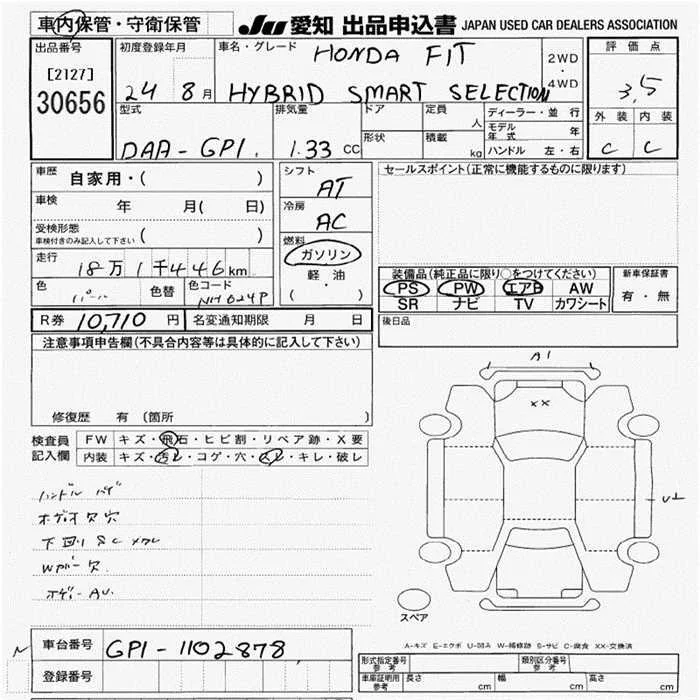 車内保管・守衛保管
JU 愛知 出品申込書 JAPAN USED CAR DEALERS ASSOCIATION
出品番号
[2127]
30656
初度登録年月
24 8月
車名・グレード
HONDA FIT
HYBRID SMART SELECTION
2WD
・
4WD
評価点
3,5
外装 内装
C C
型式
DAA-GP1.
排気量
1.33 CC
ドア
形状
定員
人
積載
kg
ディーラー・並行
モデル年式 年
ハンドル 左・右
車歴 自家用・( )
車検 年 月( 日)
受検形態
車検付きのみ記入して下さい ( )
走行 18万1千446km
色 パール 色替 色コード NH624P
シフト AT
冷房 AC
燃料
ガソリン
軽油
( ・ )
セールスポイント(正常に機能するものに限ります)
装備品(純正品に限り○をつけてください)
PS PW エアB AW
SR ナビ TV カワシート
新車保証書
有・無
後日品
R券 10,710 円 名変通知期限 月 日
注意事項申告欄(不具合内容等は具体的に記入して下さい)
修復歴 有 (箇所 )
検査員記入欄
FW キズ・飛石・ヒビ割・リペア跡・X要
内装 キズ・汚レ・コゲ・穴・スレ・キレ・破レ
ハンドル
欠穴
下回り SC
欠
AU.
A1
XX
U1
スペア
A-キズ E-エクボ U-凹み W-補修跡 S-サビ C-腐食 XX-交換済
車台番号 GP1-1102878
登録番号
型式指定番号 参考
類別区分番号 参考
車庫証明用 参考 長さ cm 幅 cm 高さ cm